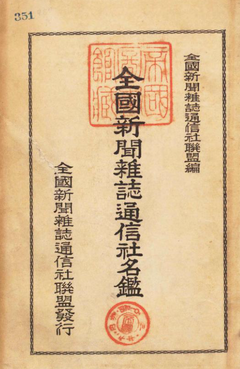 351
全國新聞雜誌通信社聯盟編
全國新聞雜誌通信社名鑑
全國新聞雜誌通信社聯盟發行